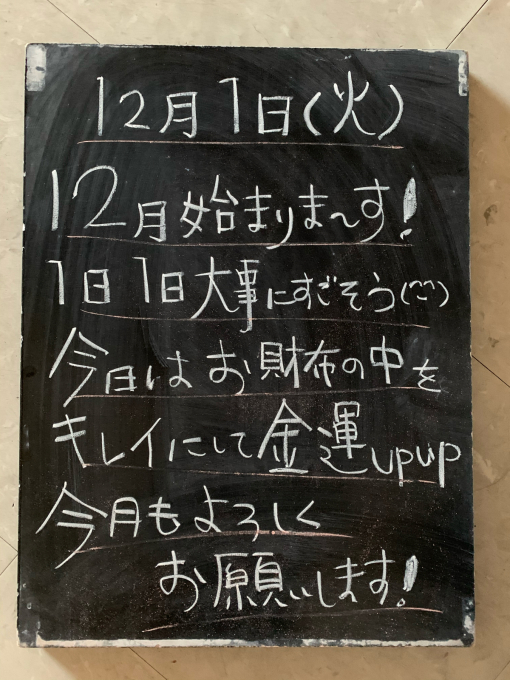 12月1日(火)
12月始まりま〜す!
1日1日大事にすごそう(^^)
今日はお財布の中を
キレイにして金運upup
今月もよろしく
お願いします!